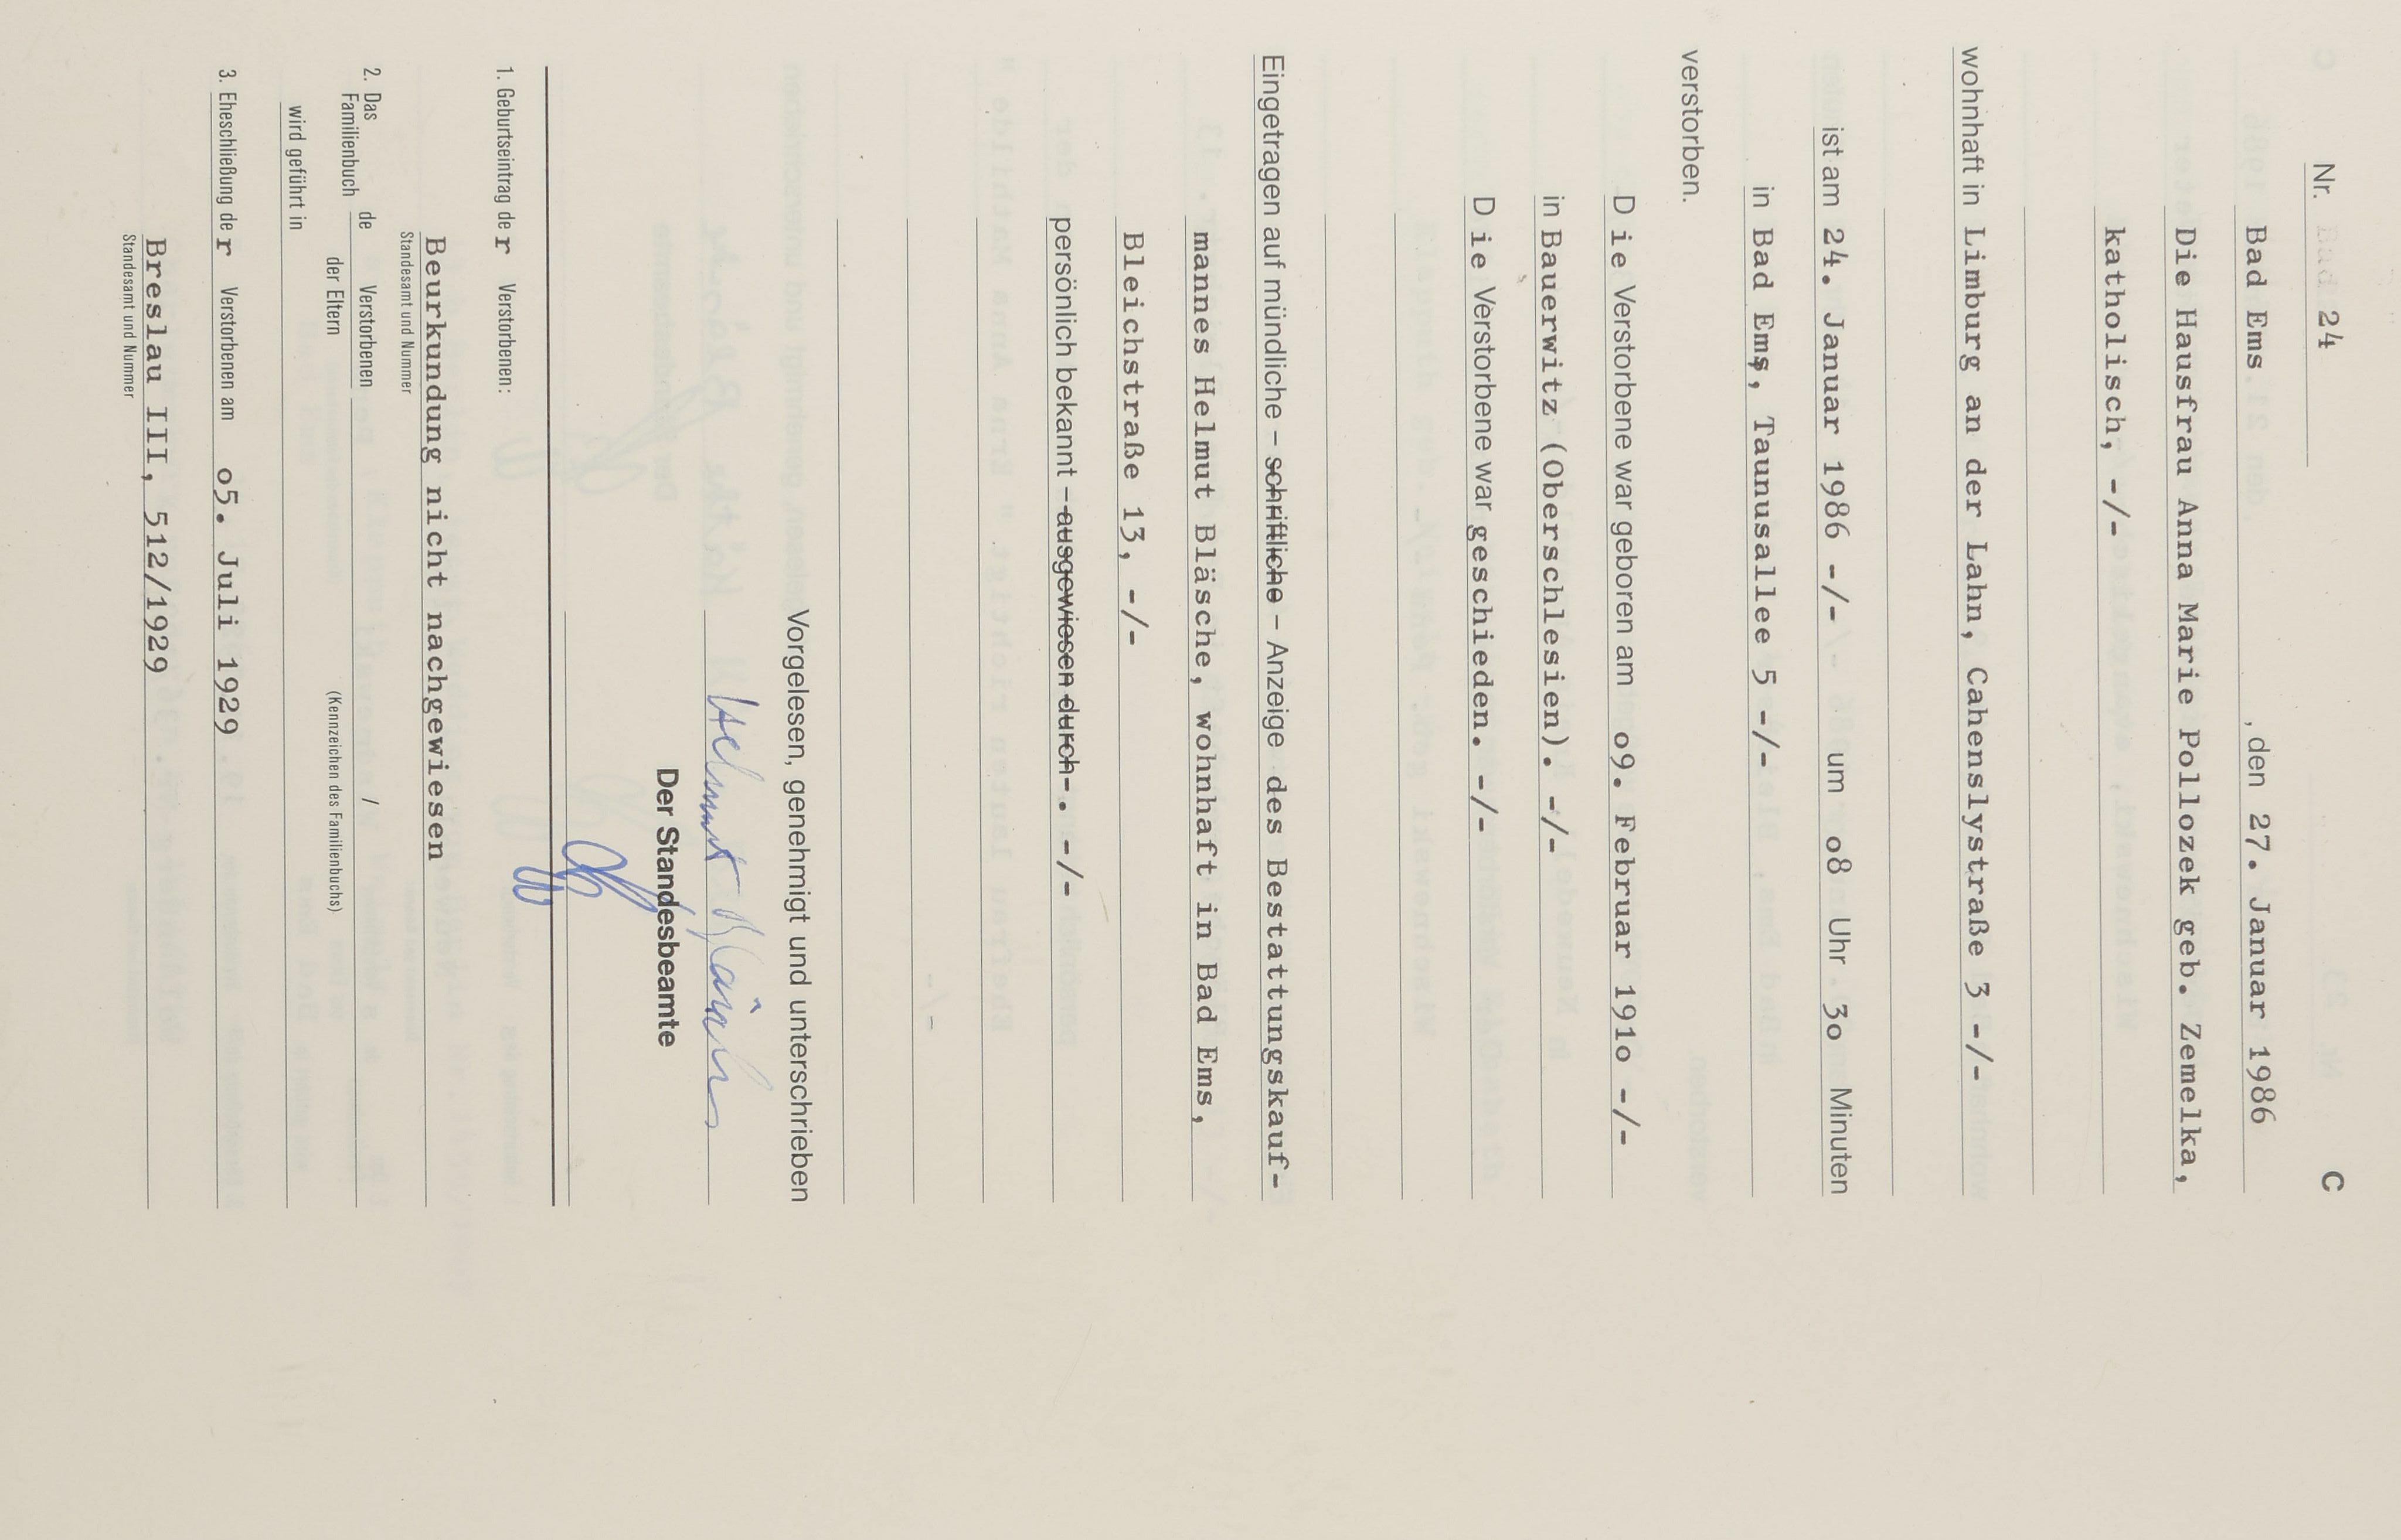 Nr. 24 C
Bad Ems , den 27. Januar 1986
Die Hausfrau Anna Marie Pollozek geb. Zemelka,
katholisch, -/-
wohnhaft in Limburg an der Lahn, Cahenslystraße 3 -/-
ist am 24. Januar 1986 -/- um o8 Uhr 3o Minuten
in Bad Ems, Taunusallee 5 -/-
verstorben.
D ie Verstorbene war geboren am o9. Februar 191o -/-
in Bauerwitz (Oberschlesien). -/-
D ie Verstorbene war geschieden. -/-
Eingetragen auf mündliche – schriftliche – Anzeige des Bestattungskauf-
mannes Helmut Bläsche, wohnhaft in Bad Ems,
Bleichstraße 13, -/-
persönlich bekannt – ausgewiesen durch -. -/-
-/-
Vorgelesen, genehmigt und unterschrieben
Helmut Bläsche
Der Standesbeamte
1. Geburtseintrag de r Verstorbenen:
Beurkundung nicht nachgewiesen
Standesamt und Nummer
2. Das Familienbuch de Verstorbenen /
der Eltern (Kennzeichen des Familienbuchs)
wird geführt in
3. Eheschließung de r Verstorbenen am o5. Juli 1929
Breslau III, 512/1929
Standesamt und Nummer